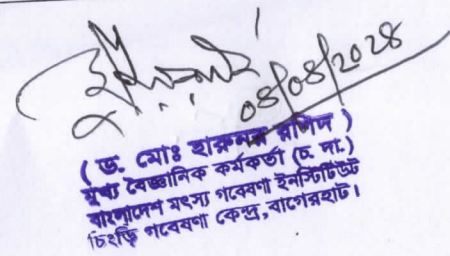 ০৪/০৪/২০২৪
( ড. মোঃ হারুনর রশিদ )
মুখ্য বৈজ্ঞানিক কর্মকর্তা (চ. দা.)
বাংলাদেশ মৎস্য গবেষণা ইনস্টিটিউট
চিংড়ি গবেষণা কেন্দ্র, বাগেরহাট।